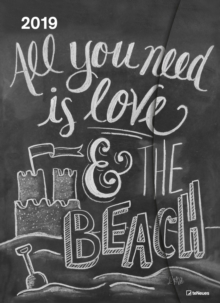 2019
All you need
is love
& THE
BEACH
teNeues